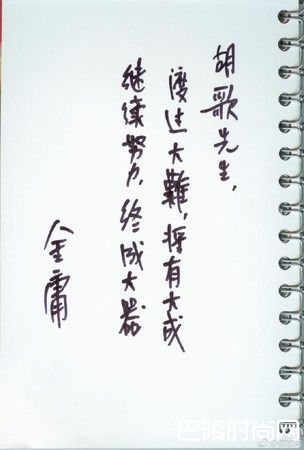 胡歌先生，
渡过大難，将有大成
继续努力，终成大器
金庸
巴陵时尚网